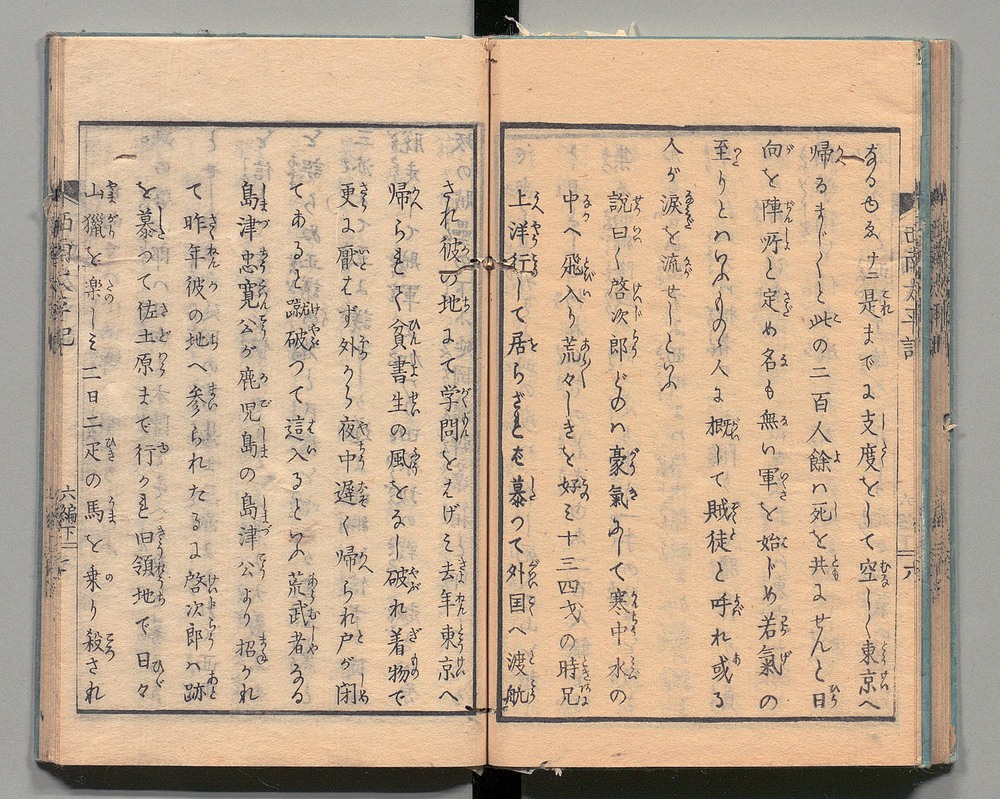 なるゆゑナニ是までに支度をして空しく東京へ
帰るまじくと此の二百人余ハ死を共にせんと日
向を陣所と定め名も無い軍を始じめ若氣の
至りとハいふものゝ人に概して賊徒と呼れ或る
人が涙を流せしといふ
説曰く啓次郎どのハ豪氣にて寒中水の
中へ飛入り荒々しきを好ミ十三四才の時兄
上洋行して居らざれバ慕つて外国へ渡航
され彼の地にて学問をはげミ去年東京へ
帰られて貧書生の風をなし破れ着物で
更に厭はず外から夜中遅く帰られ戸が閉
てあると蹴破つて這入るといふ荒武者なる
島津忠寛公が鹿児島の島津公より招がれ
て昨年彼の地へ参られたるに啓次郎ハ跡
を慕つて佐土原まで行かれ旧領地で日々
山獵を楽しミ一日二疋の馬を乗り殺され
西南太平記
六
西南太平記
六編下